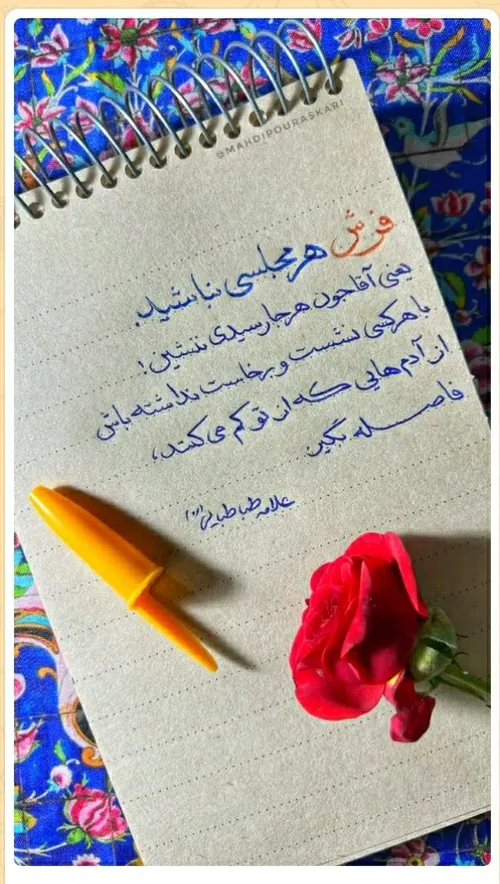 @MAHDIPOURASKARI
فرش هر مجلسی نباشید.
یعنی آقاجون هرجا رسیدی ننشین!
با هرکسی نشست و برخاست نداشته باش
از آدم‌هایی که از تو کم می‌کنند،
فاصله بگیر.
علامه طباطبایی(ره)